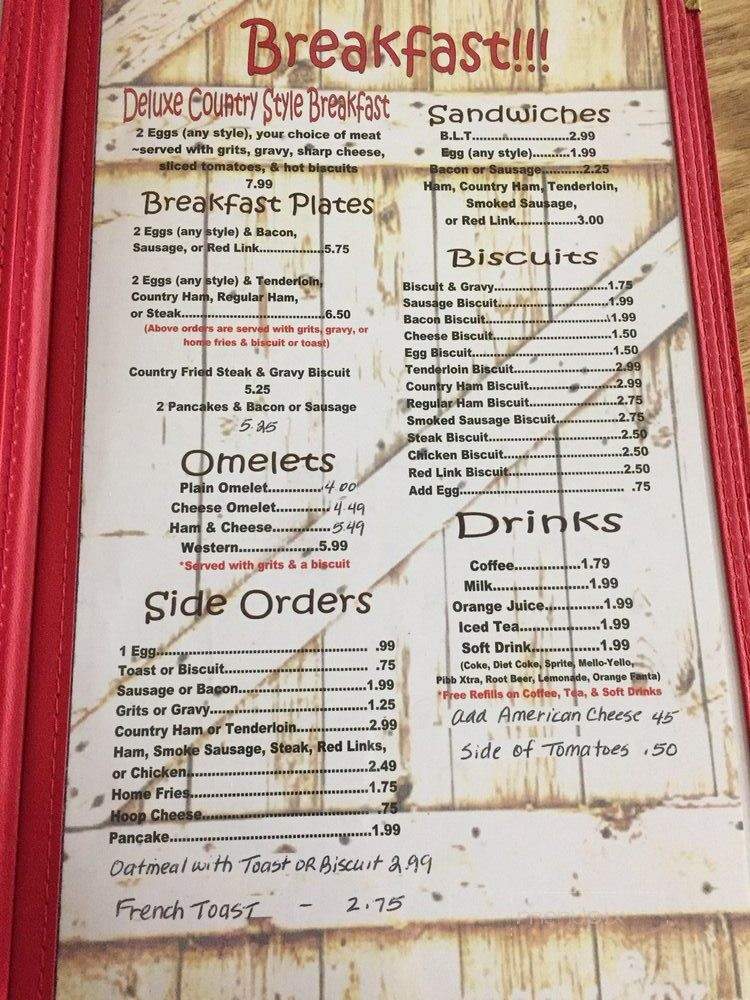 Breakfast!!!
Deluxe Country Style Breakfast
2 Eggs (any style), your choice of meat
~served with grits, gravy, sharp cheese,
sliced tomatoes, & hot biscuits
7.99
Breakfast Plates
2 Eggs (any style) & Bacon,
Sausage, or Red Link..................5.75
2 Eggs (any style) & Tenderloin,
Country Ham, Regular Ham,
or Steak.......................................6.50
(Above orders are served with grits, gravy, or
home fries & biscuit or toast)
Country Fried Steak & Gravy Biscuit
5.25
2 Pancakes & Bacon or Sausage
5.25
Omelets
Plain Omelet.............4.00
Cheese Omelet.............4.49
Ham & Cheese..............5.49
Western....................5.99
*Served with grits & a biscuit
Side Orders
1 Egg...................................................... .99
Toast or Biscuit..................................... .75
Sausage or Bacon................................1.99
Grits or Gravy.......................................1.25
Country Ham or Tenderloin..................2.99
Ham, Smoke Sausage, Steak, Red Links,
or Chicken.............................................2.49
Home Fries............................................1.75
Hoop Cheese.......................................... .75
Pancake..................................................1.99
Oatmeal with Toast OR Biscuit 2.99
French Toast - 2.75
Sandwiches
B.L.T............................2.99
Egg (any style)..........1.99
Bacon or Sausage..........2.25
Ham, Country Ham, Tenderloin,
Smoked Sausage,
or Red Link................3.00
Biscuits
Biscuit & Gravy............................1.75
Sausage Biscuit............................1.99
Bacon Biscuit...............................1.99
Cheese Biscuit.............................1.50
Egg Biscuit...................................1.50
Tenderloin Biscuit.........................2.99
Country Ham Biscuit.....................2.99
Regular Ham Biscuit.....................2.75
Smoked Sausage Biscuit...............2.75
Steak Biscuit.................................2.50
Chicken Biscuit.............................2.50
Red Link Biscuit............................2.50
Add Egg........................................ .75
Drinks
Coffee................1.79
Milk.......................1.99
Orange Juice..............1.99
Iced Tea...................1.99
Soft Drink................1.99
(Coke, Diet Coke, Sprite, Mello-Yello,
Pibb Xtra, Root Beer, Lemonade, Orange Fanta)
*Free Refills on Coffee, Tea, & Soft Drinks
add American Cheese 45
Side of Tomatoes .50